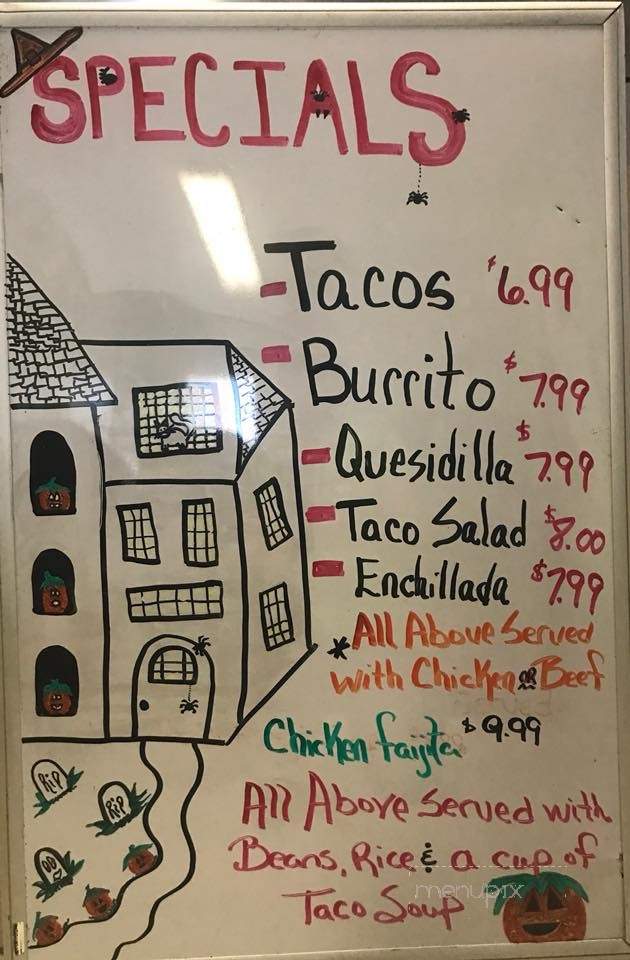 SPECIALS
- Tacos $6.99
- Burrito $7.99
- Quesidilla $7.99
- Taco Salad $8.00
- Enchillada $7.99
* All Above Served
with Chicken or Beef
Chicken fajita $9.99
All Above Served with
Beans, Rice & a cup of
Taco Soup
RIP
RIP
menupix